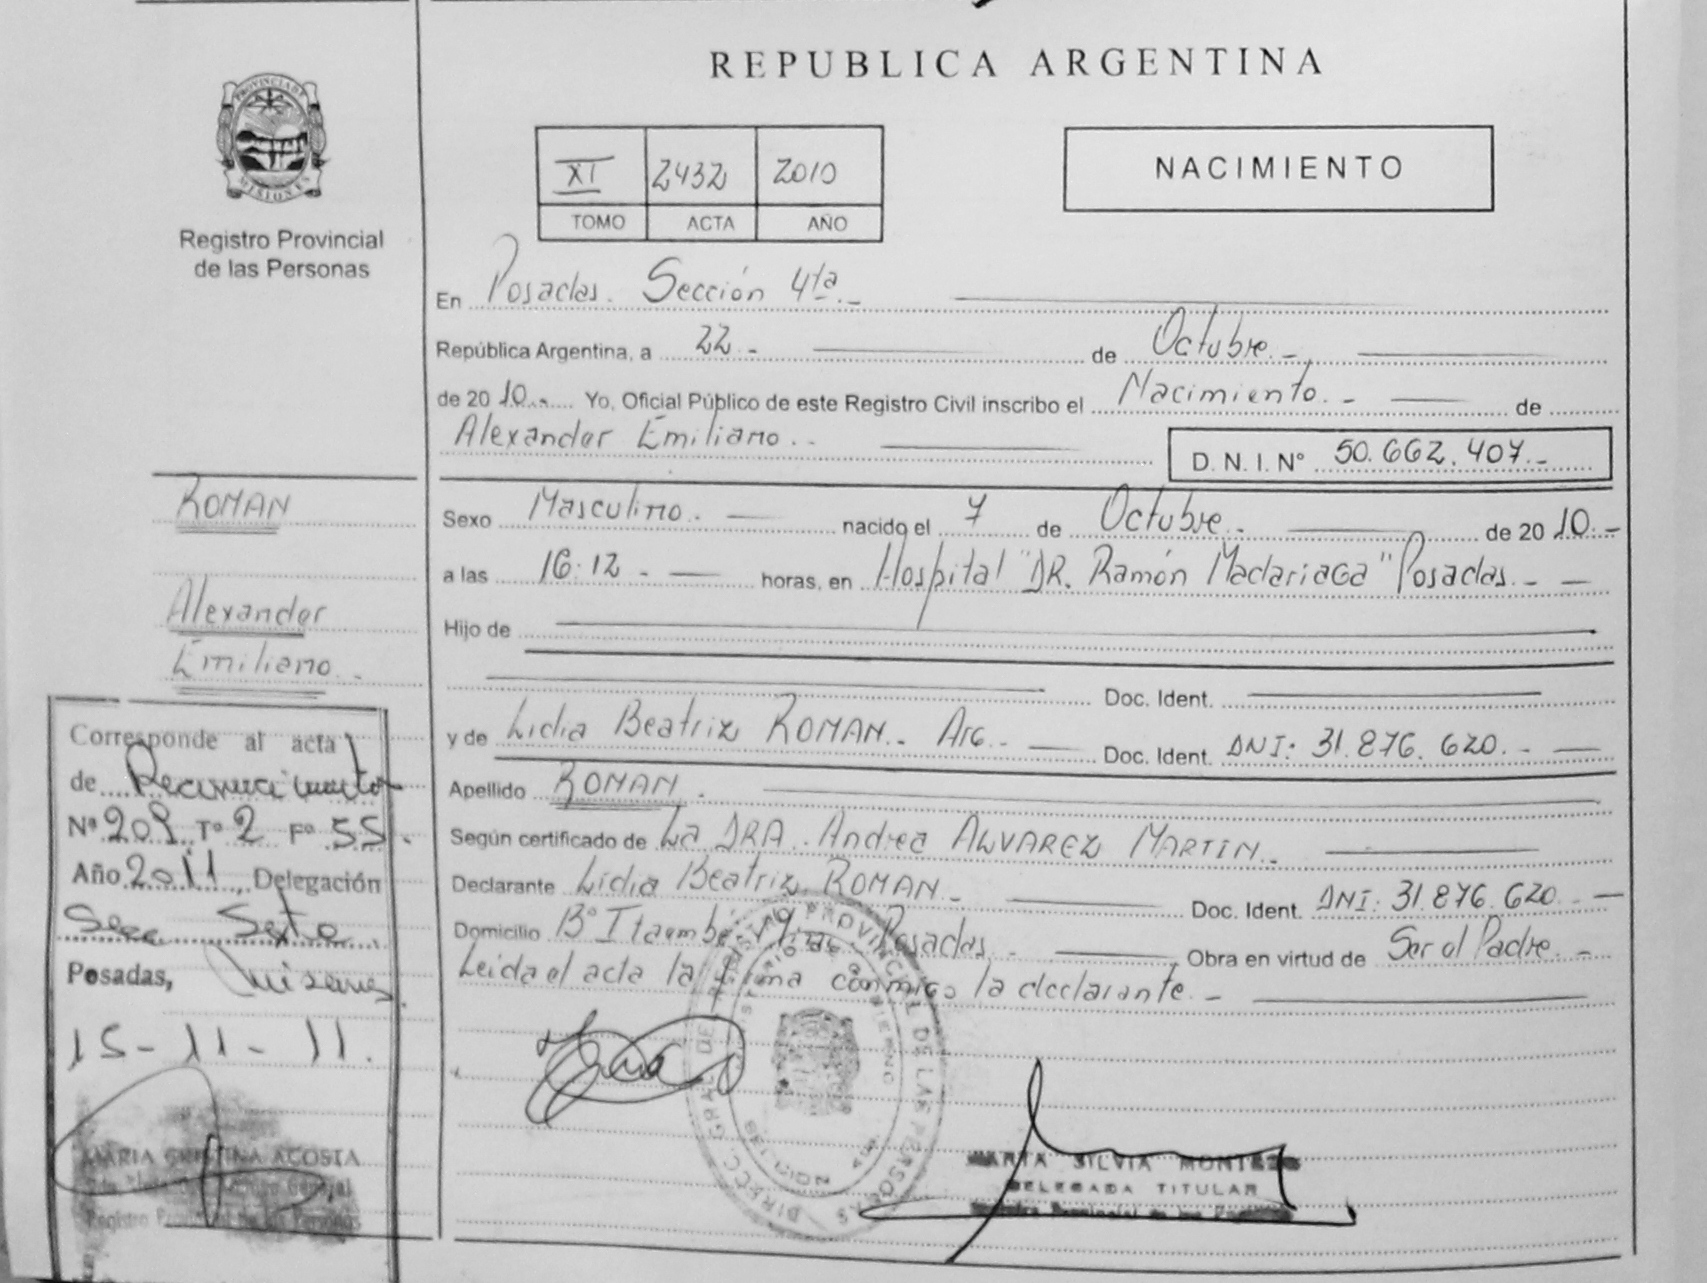 REPUBLICA ARGENTINA
PROVINCIA DE
MISIONES
Registro Provincial
de las Personas
XI 2432 2010
TOMO ACTA AÑO
NACIMIENTO
En Posadas. Sección 4ta.-
República Argentina, a 22.- de Octubre.-
de 2010.- Yo, Oficial Público de este Registro Civil inscribo el Nacimiento.- de
Alexander Emiliano.-
D. N. I. Nº 50.662.407.-
Sexo Masculino.- nacido el 7 de Octubre.- de 2010.-
a las 16:12.- horas, en Hospital "DR. Ramón Madariaga" Posadas.-
Hijo de
Doc. Ident.
y de Lidia Beatriz ROMAN.- Arg.- Doc. Ident. DNI: 31.876.620.-
Apellido ROMAN.
Según certificado de La DRA. Andrea ALVAREZ MARTIN.-
Declarante Lidia Beatriz ROMAN.- Doc. Ident. DNI: 31.876.620.-
Domicilio Bº Itaembé Posadas.- Obra en virtud de Ser el Padre.-
Leida el acta la firma conmigo la declarante.-
ROMAN
Alexander
Emiliano.-
Corresponde al acta
de Reconocimiento
Nº 209 Tº 2 Fº 55.
Año 2011, Delegación
Secc Sexta
Posadas, Misiones.
15-11-11.
MARIA CRISTINA ACOSTA
Registro Provincial de las Personas
DIREC. GRAL. DEL REGISTRO PROVINCIAL DE LAS PERSONAS
MARIA SILVIA MONTIEL
DELEGADA TITULAR
Registro Provincial de las Personas